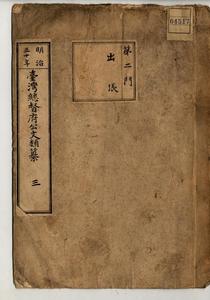 04517
第二門
出張
明治
三十年
臺灣總督府公文類纂 三